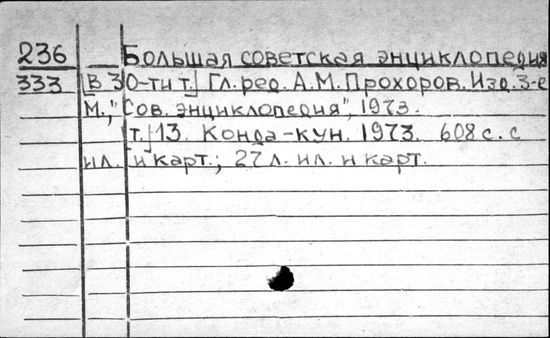 236 Большая советская энциклопедия
333 [В 30-ти т.] Гл. ред. А.М. Прохоров. Изд. 3-е
М., "Сов. энциклопедия", 1973.
[т.] 13. Конда-кун. 1973. 608 с. с
ил. [и карт.; 27 л. ил. и карт.